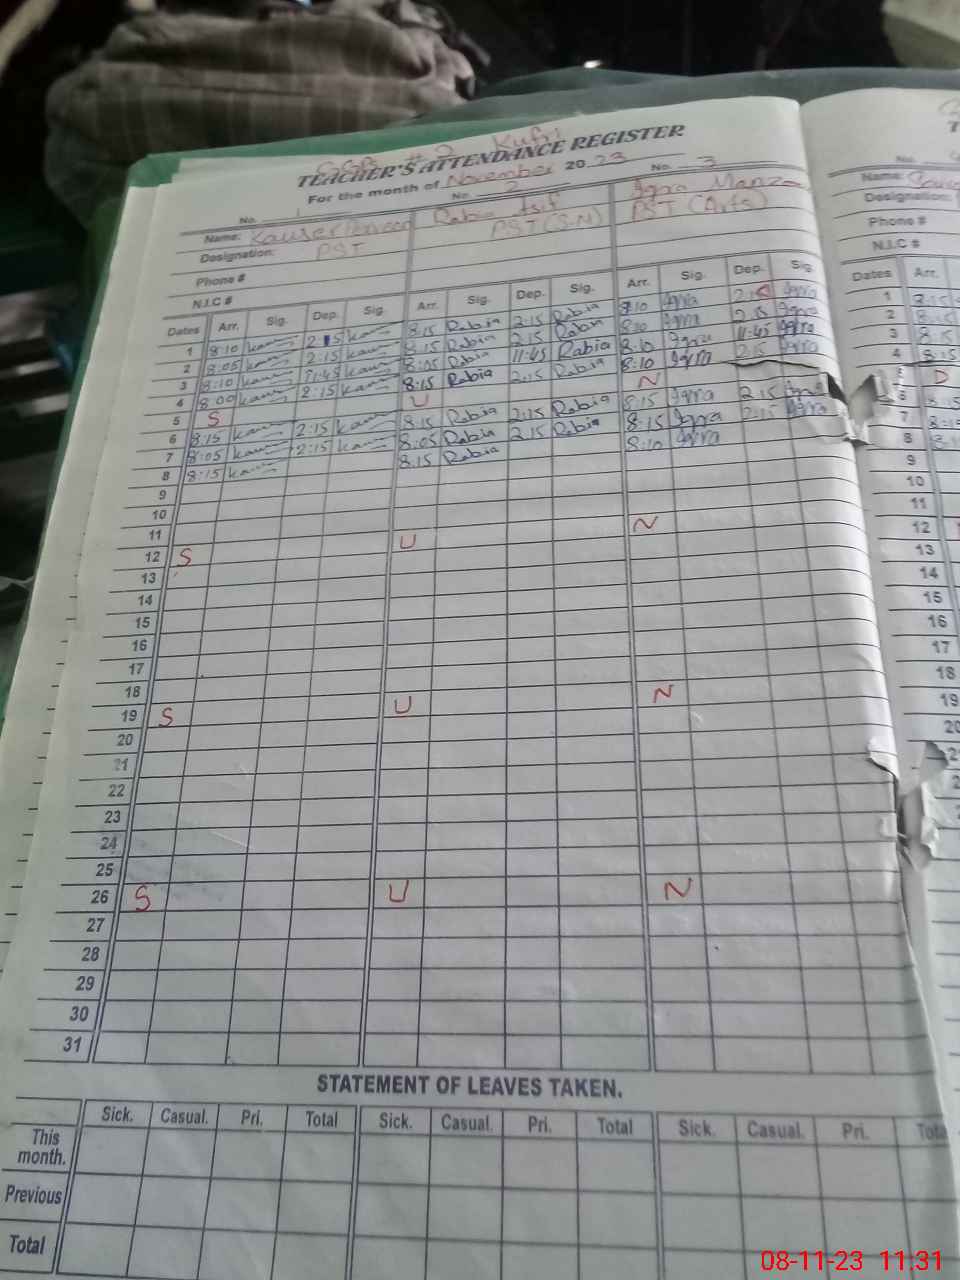 TEACHER'S ATTENDANCE REGISTER
For the month of November 2023
No. 1 No. 2 No. 3
Name: Kauser Parveen Rabia Asif Iqra Manza
Designation: PST PST (S-N) PST (Arts)
Phone #
N.I.C #
Dates Arr. Sig. Dep. Sig. Arr. Sig. Dep. Sig. Arr. Sig. Dep. Sig.
1 8:10 2:15 8:15 Rabia 2:15 Rabia 8:10 Iqra 2:15 Iqra
2 8:05 2:15 8:15 Rabia 2:15 Rabia 8:10 Iqra 2:15 Iqra
3 8:10 11:45 8:05 Rabia 11:45 Rabia 8:10 Iqra 11:45 Iqra
4 8:00 2:15 8:15 Rabia 2:15 Rabia 8:10 Iqra 2:15 Iqra
5 S U N
6 8:15 2:15 8:15 Rabia 2:15 Rabia 8:15 Iqra 2:15 Iqra
7 8:05 2:15 8:05 Rabia 2:15 Rabia 8:15 Iqra 2:15 Iqra
8 8:15 8:15 Rabia 8:10 Iqra
9
10
11
12 S U N
13
14
15
16
17
18
19 S U N
20
21
22
23
24
25
26 S U N
27
28
29
30
31
STATEMENT OF LEAVES TAKEN.
Sick. Casual. Pri. Total Sick. Casual. Pri. Total Sick. Casual. Pri. Total
This month.
Previous
Total
Name:
Designation:
Phone #
N.I.C #
Dates Arr.
1 8:15
2 8:15
3 8:15
4 8:15
D
6 8:15
7 8:15
8
9
10
11
12
13
14
15
16
17
18
19
20
08-11-23 11:31